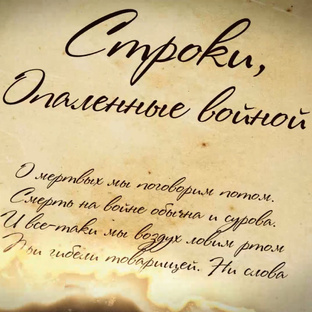 Строки,
Опаленные войной
О мертвых мы поговорим потом.
Смерть на войне обычна и сурова.
И все-таки мы воздух ловим ртом
При гибели товарищей. Ни слова